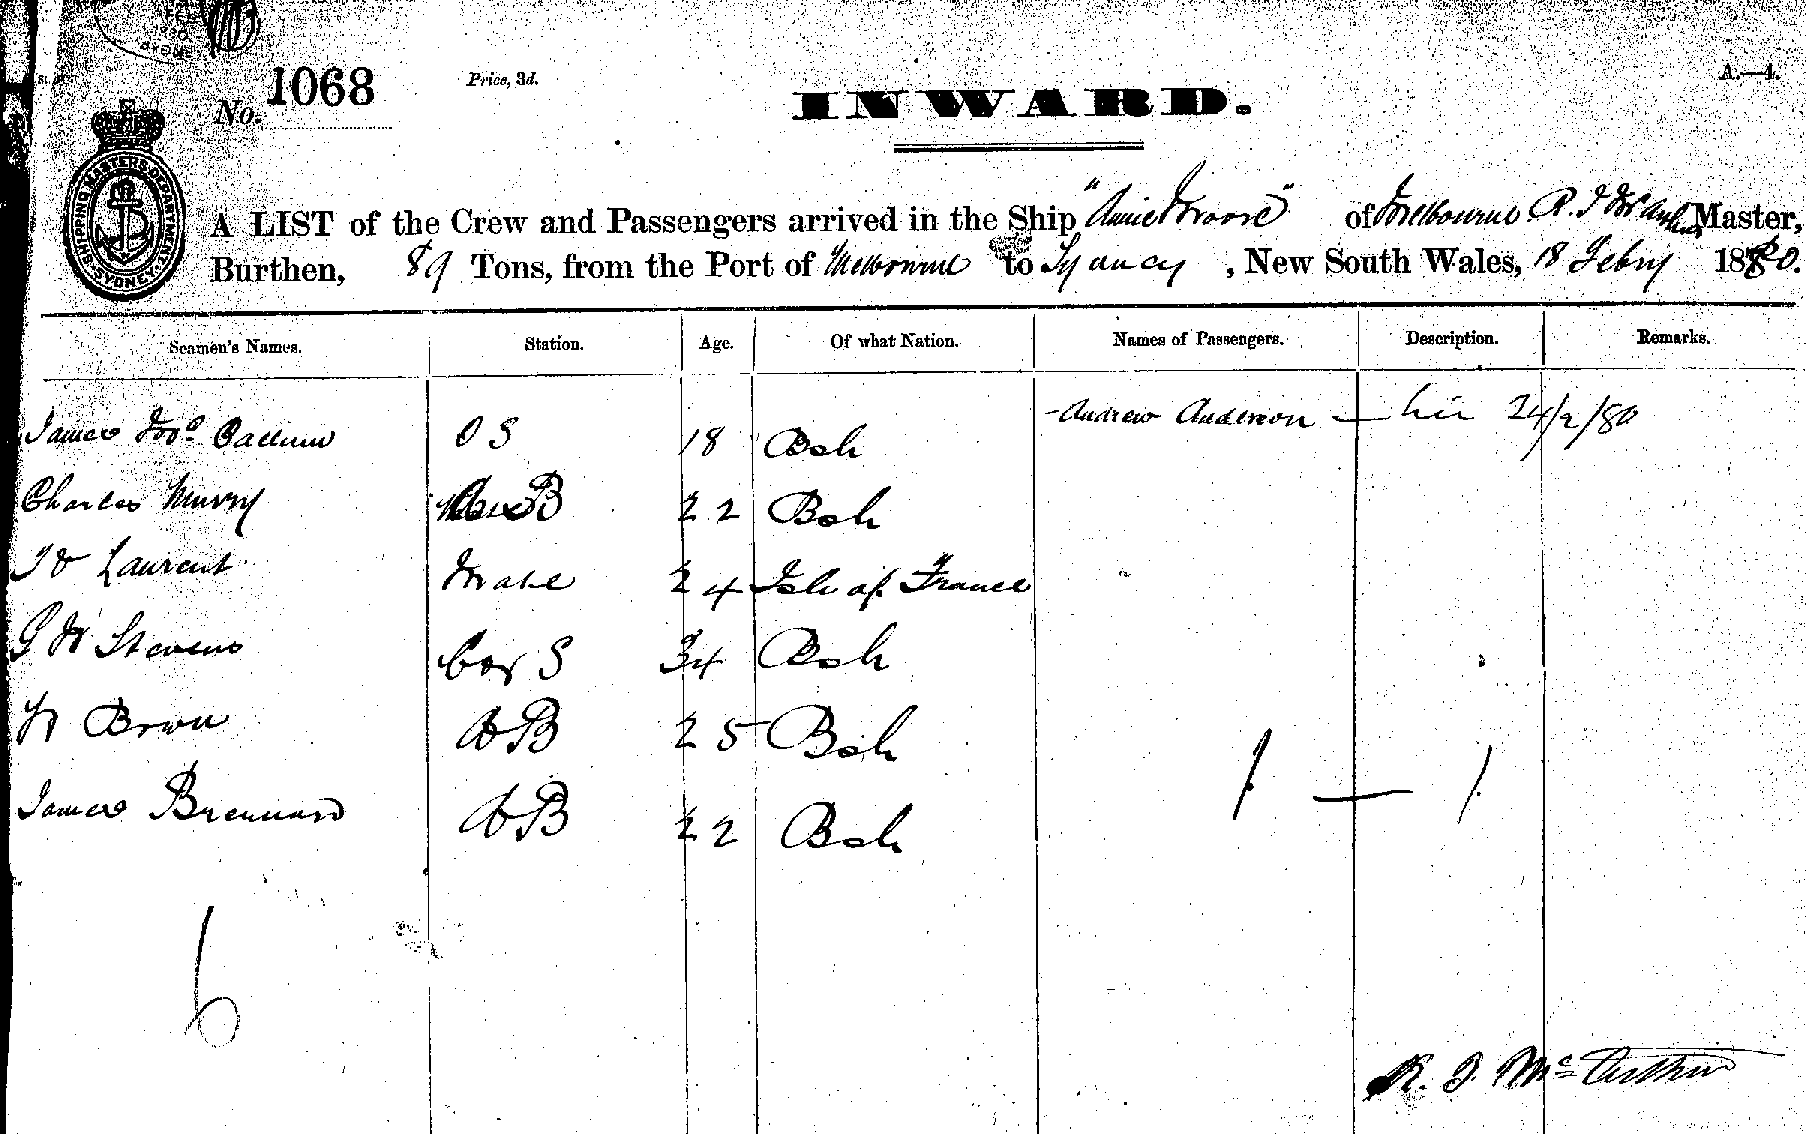 No. 1068
Price, 3d.
A.—4.
INWARD.
SHIPPING MASTERS DEPARTMENT SYDNEY
A LIST of the Crew and Passengers arrived in the Ship "Annie Moore" of Melbourne R. J. McArthur Master,
Burthen, 89 Tons, from the Port of Melbourne to Sydney, New South Wales, 18 Febry 1880.
Seamen's Names. Station. Age. Of what Nation. Names of Passengers. Description. Remarks.
Andrew Anderson 24/2/80
James Mc Callum O S 18 Bsh
Charles Murry AB 22 Bsh
Laurent Mate 24 Isle of France
G W Stevens Coy S 34 Bsh
W Brown AB 25 Bsh
James Brennard AB 22 Bsh
1 — 1
6
R. J. McArthur